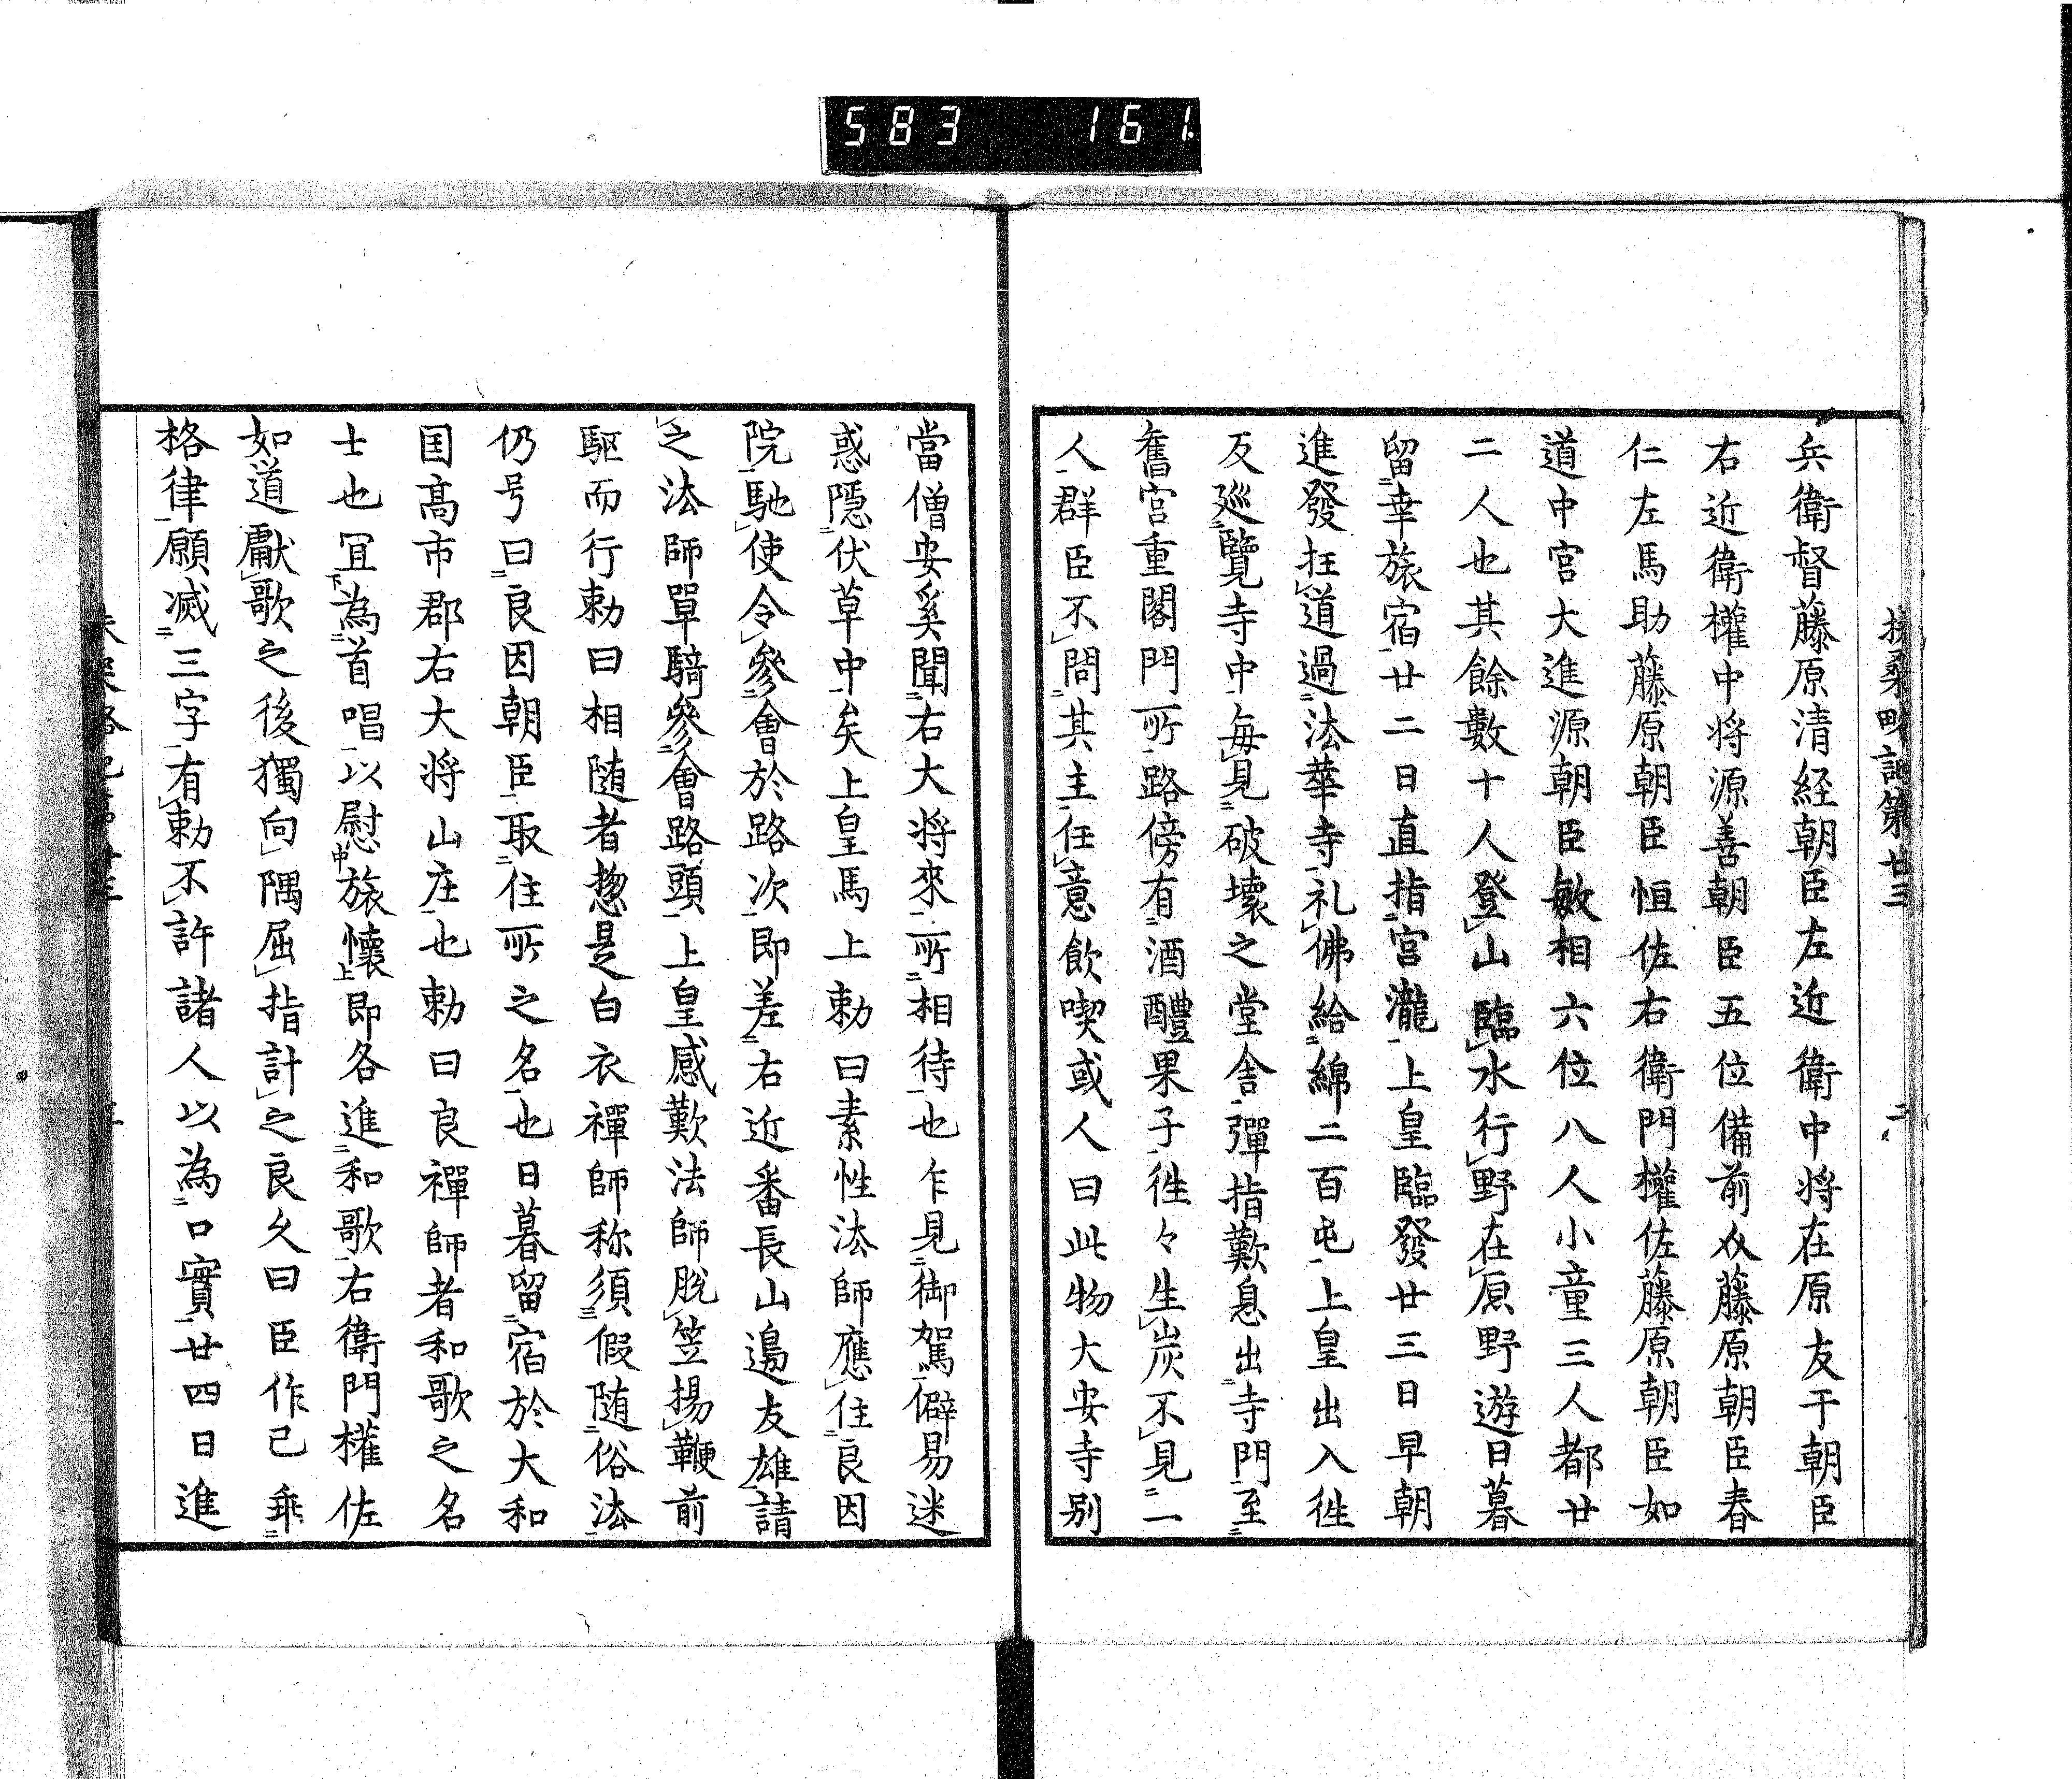 583 161
扶桑略記第廿三 二
兵衛督藤原清経朝臣左近衛中将在原友于朝臣
右近衛權中将源善朝臣五位備前介藤原朝臣春
仁左馬助藤原朝臣恒佐右衛門權佐藤原朝臣如
道中宮大進源朝臣敏相六位八人小童三人都廿
二人也其餘數十人登山臨水行野在原野遊日暮
留幸旅宿廿二日直指宮瀧上皇臨發廿三日早朝
進發抂道過法華寺礼佛給綿二百屯上皇出入徃
反巡覽寺中毎見破壞之堂舎彈指歎息出寺門至
舊宮重閣門所路傍有酒醴果子徃々生炭不見一
人群臣不問其主任意飲喫或人曰此物大安寺別
當僧安奚聞右大将來所相待也乍見御駕僻易迷
惑隠伏草中矣上皇馬上勅曰素性法師應住良因
院馳使令參會於路次即差右近番長山邊友雄請
之法師單騎參會路頭上皇感歎法師脱笠揚鞭前
駆而行勅曰相随者惣是白衣禪師称須假随俗法
仍号曰良因朝臣取住所之名也日暮留宿於大和
国高市郡右大将山庄也勅曰良禪師者和歌之名
士也冝為首唱以慰旅懐即各進和歌右衛門權佐
如道獻歌之後獨向隅屈指計之良久曰臣作已乗
格律願滅三字有勅不許諸人以為口實廿四日進